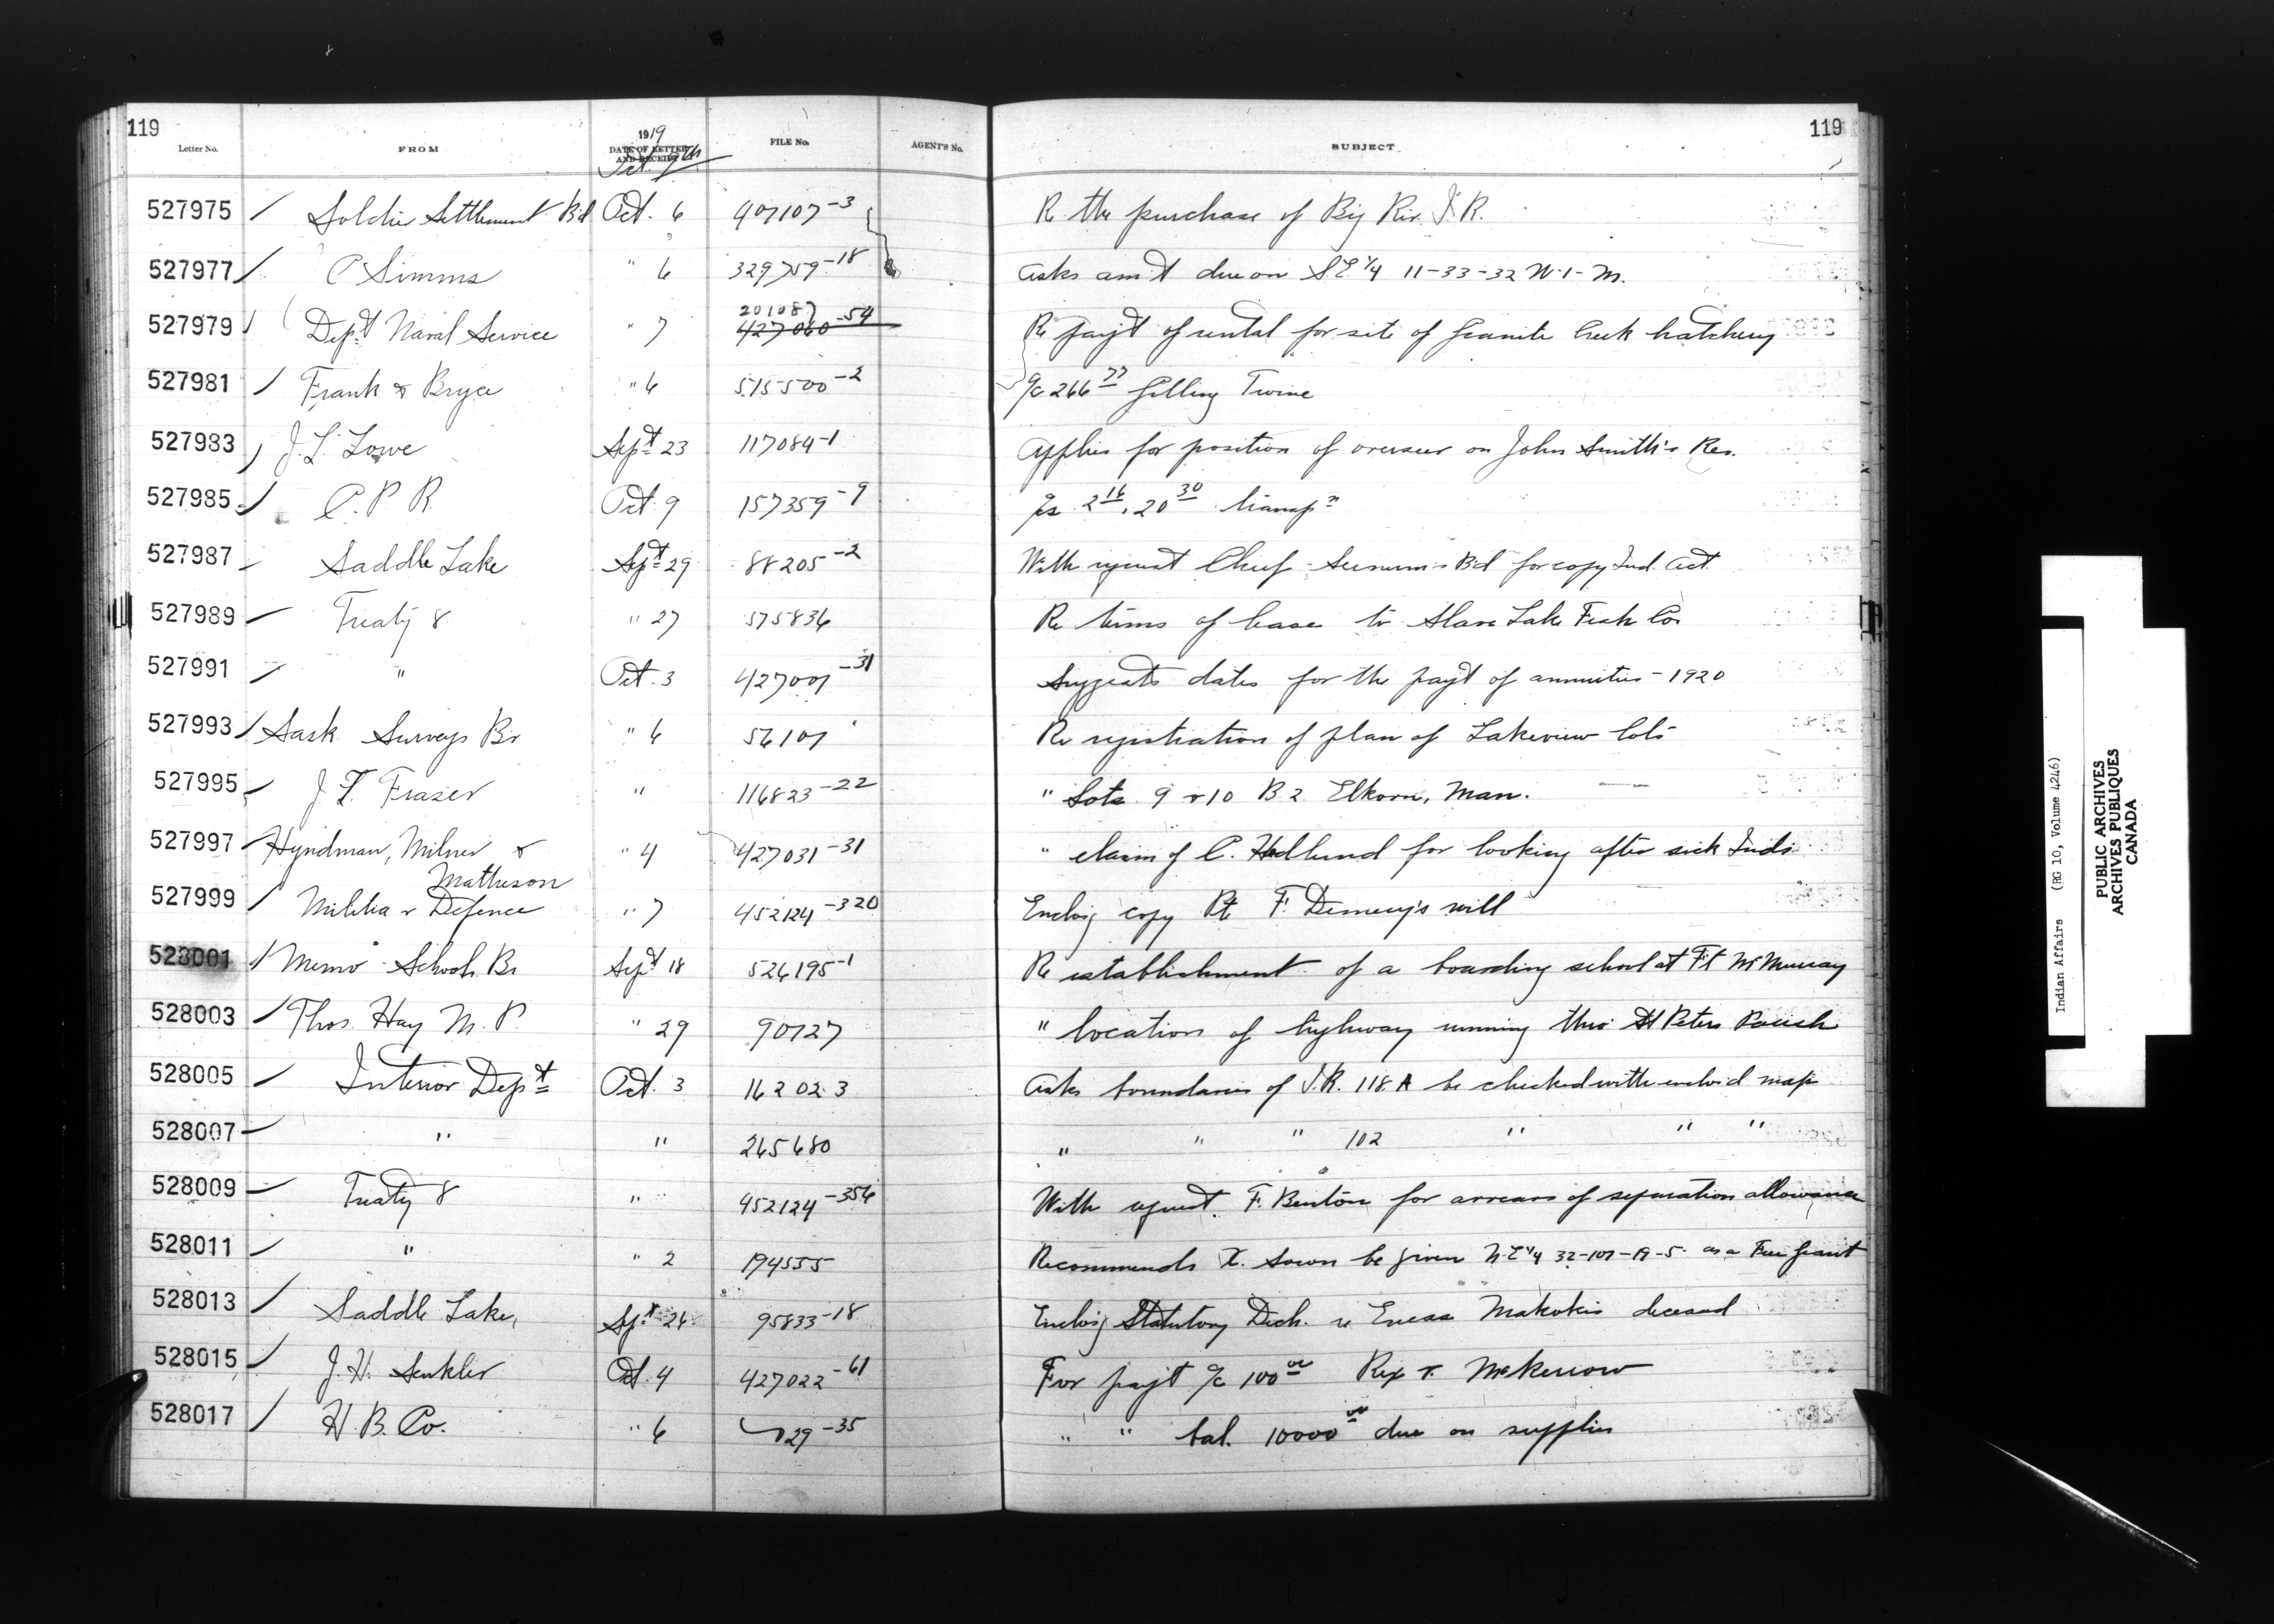 119 119
Letter No. FROM 1919 DATE OF LETTER AND RECEIPT FILE No. AGENT'S No. SUBJECT
Oct. 9th
527975 / Soldier Settlement Bd Oct. 6 407107-3 Re the purchase of Big Riv. I.R.
527977 / C Simms " 6 329759-18 Asks am't due on S E 1/4 11-33-32 W-1-M.
527979 / Dep't Naval Service " 7 201087 427060-54 Re pay't of rental for site of Granite Creek hatchery
527981 / Frank & Bryce " 6 515500-2 a/c 266 77 Gilling Twine
527983 / J. L. Lowe Sept 23 117084-1 Applies for position of overseer on John Smith's Res.
527985 / C. P. R. Oct. 9 157359-9 a/cs 2 16, 20 30 transp'n
527987 - Saddle Lake Sept 29 88205-2 With request Chief Bd for copy Ind. Act.
527989 - Treaty 8 " 27 575836 Re terms of lease to Slave Lake Fish Co.
527991 - " Oct. 3 427001-31 Suggests dates for the pay't of annuities - 1920
527993 / Sask Surveys Br " 6 56101 Re registration of plan of Lakeview lots
527995 / J. T. Fraser " 116823-22 " Lots 9 & 10 B 2 Elkorn, Man.
527997 / Hyndman, Milner & " 4 427031-31 " claim of C. Hedlund for looking after sick Inds
Matheson
527999 / Militia & Defence " 7 452124-320 Enclos'g copy Pte F. Demery's will
528001 / Memo - Schools Br Sept 18 526195-1 Re establishment of a boarding school at Ft McMurray
528003 / Thos. Hay M. P. " 29 90727 " location of highway running thro' St Peters Parish
528005 / Interior Dep't Oct. 3 162023 Asks boundaries of I.R. 118 A be checked with enclos'd map
528007 - " " 265680 " " " 102 " " "
528009 - Treaty 8 " 452124-356 With request F. Benton for arrears of separation allowance
528011 / " " 2 194555 Recommends X. Sowan be given N-E 1/4 32-107-19-5 as a Free Grant
528013 / Saddle Lake, Sept 26 95833-18 Enclos'g Statutory Decl. re Eneas Makokis deceased
528015 / J. H. Senkler Oct. 4 427022-61 For pay't a/c 100 00 Rex v. McKerrow
528017 / H. B. Co. " 6 29-35 " " bal. 10000 00 due on supplies
Indian Affairs (RG 10, Volume 4246)
PUBLIC ARCHIVES
ARCHIVES PUBLIQUES
CANADA